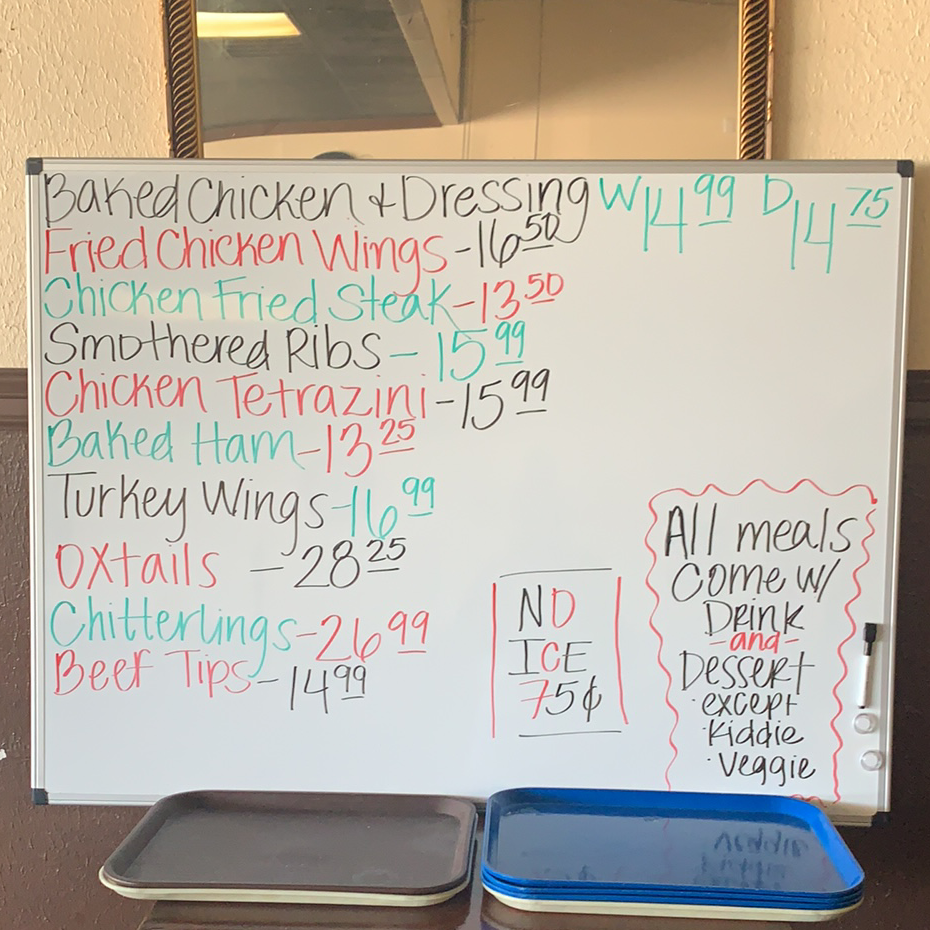 Baked Chicken + Dressing W 14.99 D 14.75
Fried Chicken Wings - 16.50
Chicken Fried Steak - 13.50
Smothered Ribs - 15.99
Chicken Tetrazini - 15.99
Baked Ham - 13.25
Turkey Wings - 16.99
Oxtails - 28.25
Chitterlings - 26.99
Beef Tips - 14.99
NO
ICE
75¢
All meals
Come w/
Drink
- and -
Dessert
· except
· Kiddie
· Veggie